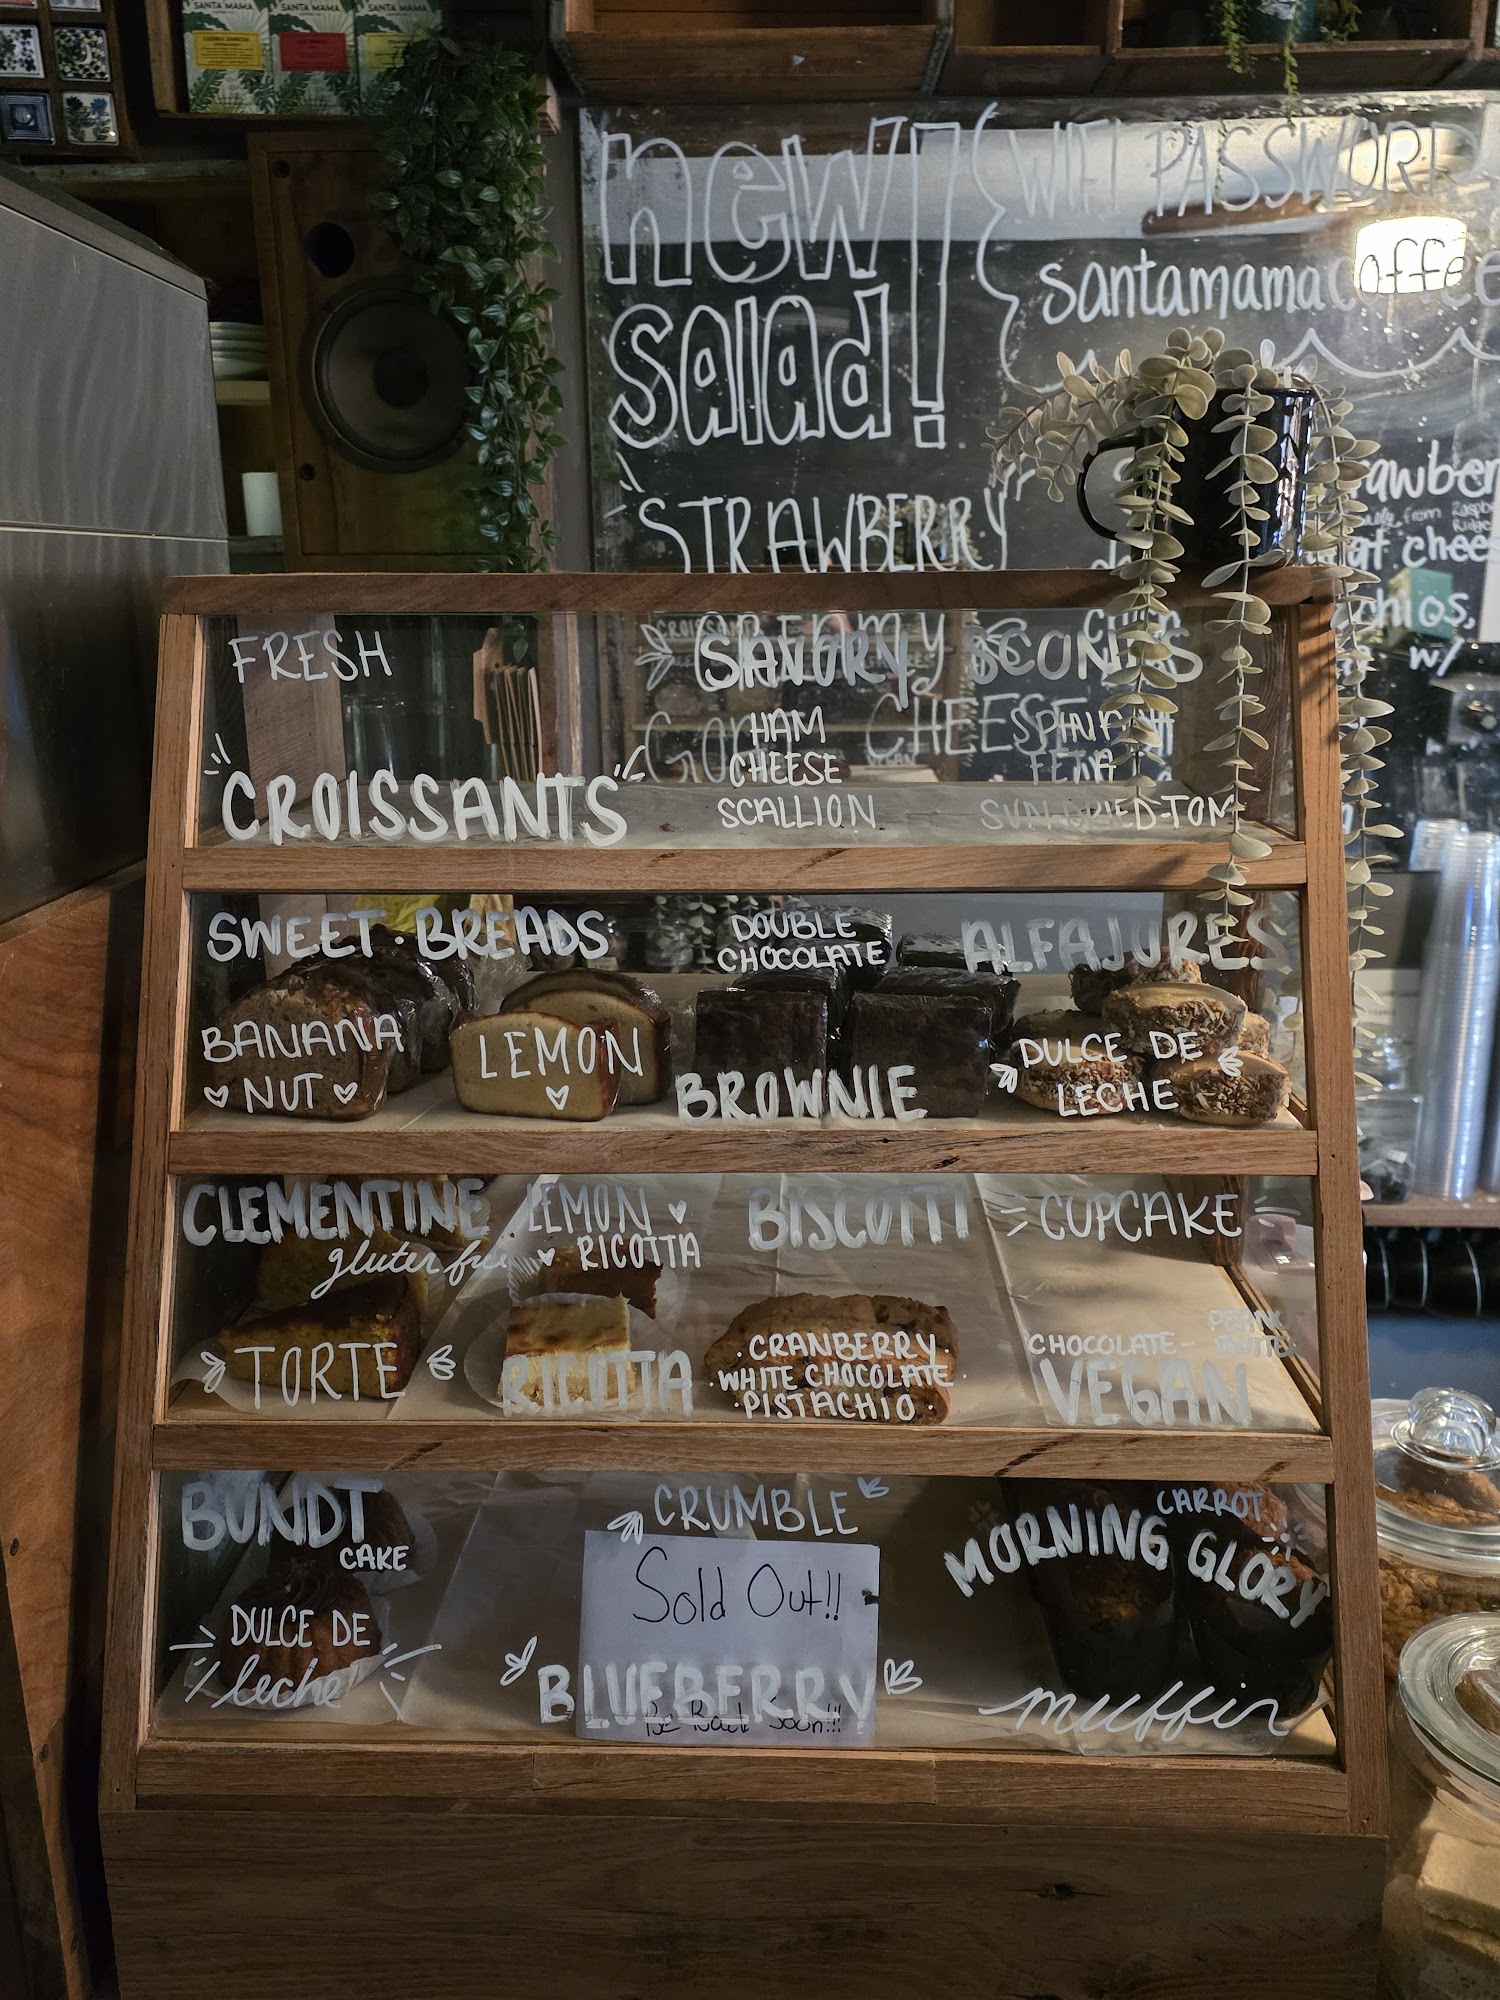 SANTA MAMA
SANTA MAMA
SANTA MAMA
new
salad!
STRAWBERRY
CREAMY
GOAT CHEESE
WIFI PASSWORD
santamamacoffee
chee
chios,
w/
FRESH
CROISSANTS
SAVORY SCONES
HAM
CHEESE
SCALLION
SPINACH
FETA
SUN-DRIED-TOM
SWEET·BREADS
BANANA
NUT
LEMON
DOUBLE
CHOCOLATE
BROWNIE
ALFAJORES
DULCE DE
LECHE
CLEMENTINE
gluten free
TORTE
LEMON
RICOTTA
RICOTTA
BISCOTTI
·CRANBERRY·
·WHITE CHOCOLATE·
·PISTACHIO·
CUPCAKE
CHOCOLATE- PEANUT
BUTTER
VEGAN
BUNDT
CAKE
DULCE DE
leche
CRUMBLE
Sold Out!!
BLUEBERRY
Be Back Soon!!!
CARROT
MORNING GLORY
muffin